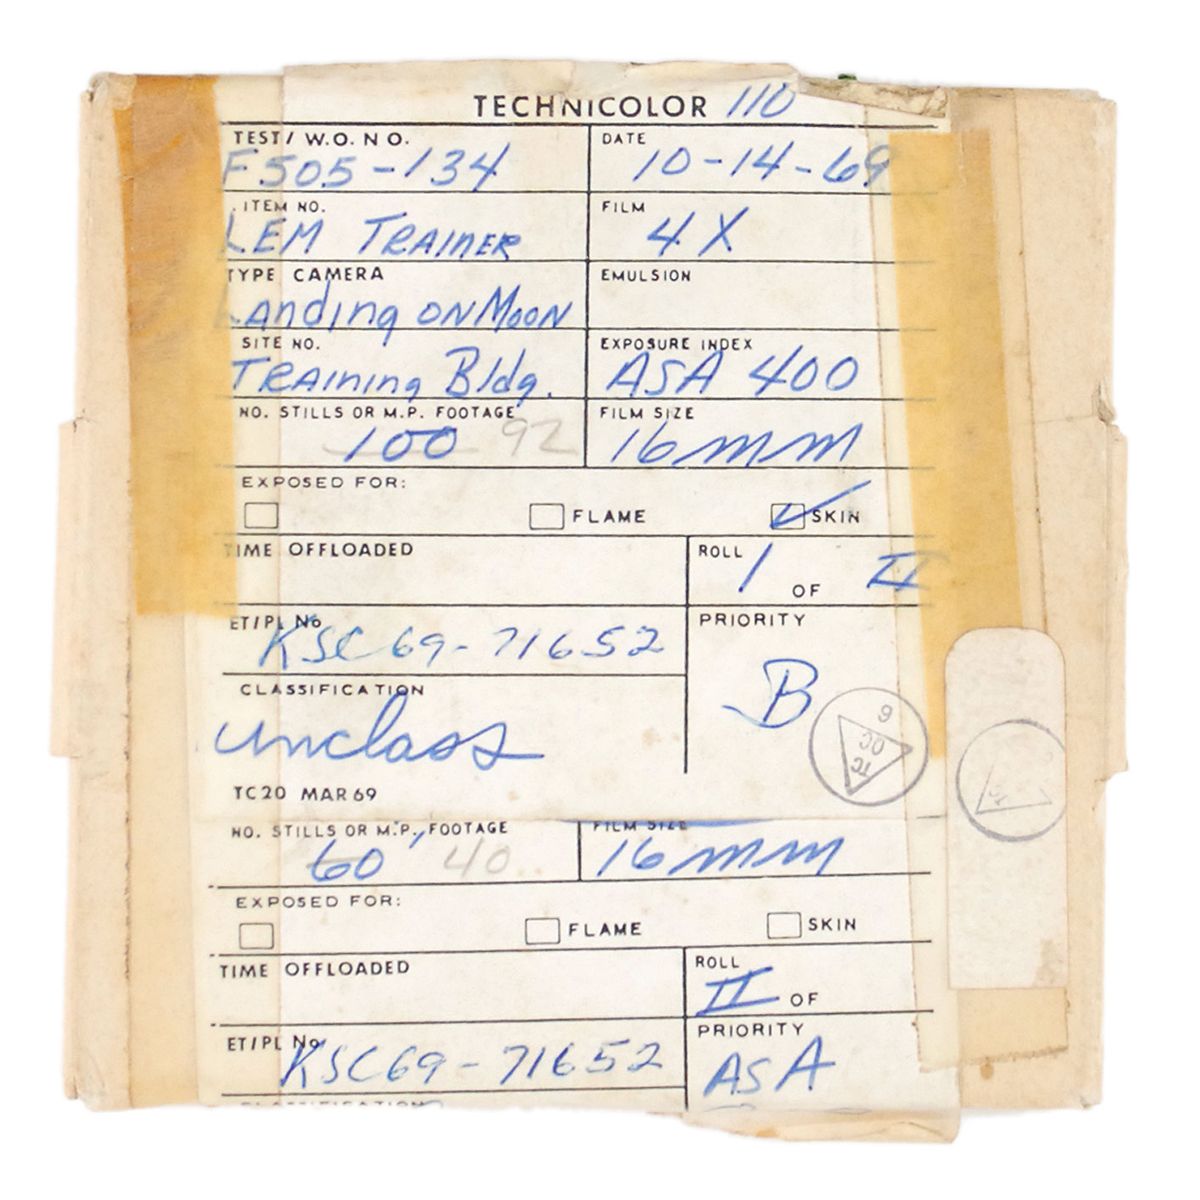 TECHNICOLOR 110
TEST/ W.O. NO. DATE
F505-134 10-14-69
ITEM NO. FILM
LEM TRAINER 4X
TYPE CAMERA EMULSION
LAnding ON MOON
SITE NO. EXPOSURE INDEX
TRAining Bldg. ASA 400
NO. STILLS OR M.P. FOOTAGE FILM SIZE
100 92 16mm
EXPOSED FOR:
FLAME SKIN
TIME OFFLOADED ROLL
1 OF II
ET/PL No PRIORITY
KSC69-71652
B
CLASSIFICATION
unclass
9
QC
TC
TC20 MAR 69
NO. STILLS OR M.P. FOOTAGE FILM SIZE
60 40 16mm
EXPOSED FOR:
FLAME SKIN
TIME OFFLOADED ROLL
II OF
ET/PL No PRIORITY
KSC69-71652 ASA
CLASSIFICATION